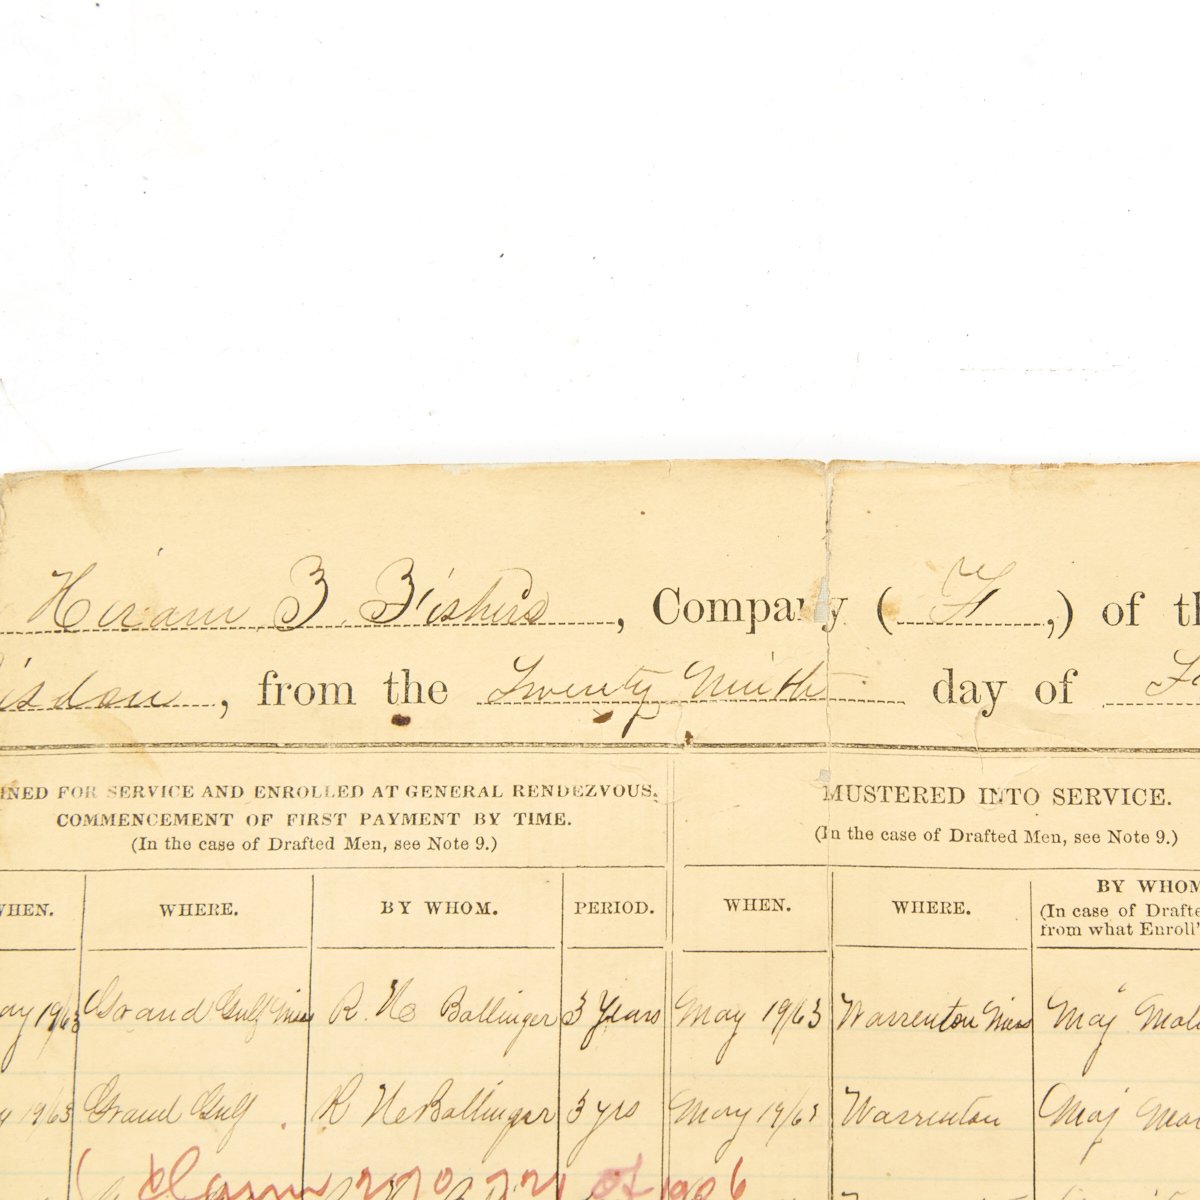 Hiram B. Fisher's, Company (F,) of th
isdon, from the Twenty Ninth day of
INED FOR SERVICE AND ENROLLED AT GENERAL RENDEZVOUS.
COMMENCEMENT OF FIRST PAYMENT BY TIME.
(In the case of Drafted Men, see Note 9.)
MUSTERED INTO SERVICE.
(In the case of Drafted Men, see Note 9.)
WHEN. WHERE. BY WHOM. PERIOD. WHEN. WHERE. BY WHOM
(In case of Drafte
from what Enroll'
ay 19/63 Grand Gulf Miss R. H. Ballinger 3 Years May 19/63 Warrenton Miss Maj
y 19/63 Grand Gulf. R H Ballinger 3 yrs May 19/63 Warrenton Maj
Claim of 1906